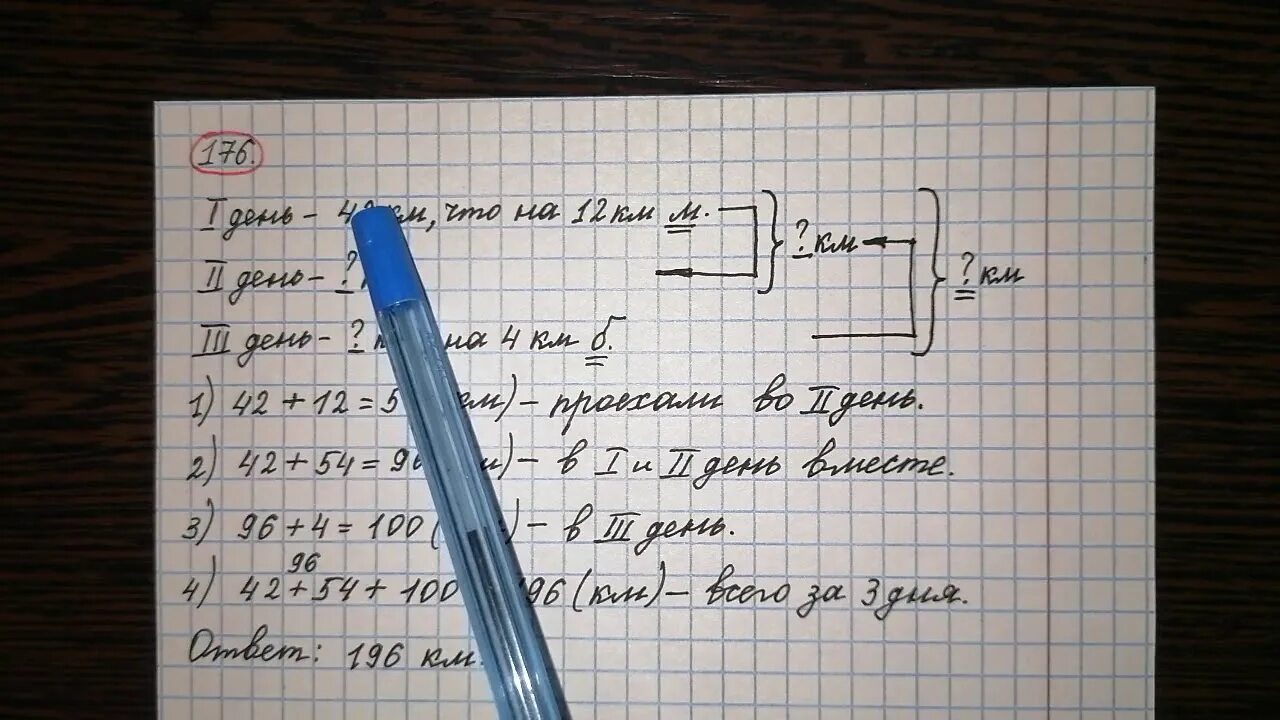 176.
I день - 42 км, что на 12 км м. ? км
II день - ? ? км
III день - ? на 4 км б.
1) 42 + 12 = 5 км) - проехали во II день.
2) 42 + 54 = 96 ) - в I и II день вместе.
3) 96 + 4 = 100 ( ) - в III день.
96
4) 42 + 54 + 100 196 (км) - всего за 3 дня.
Ответ: 196 км.